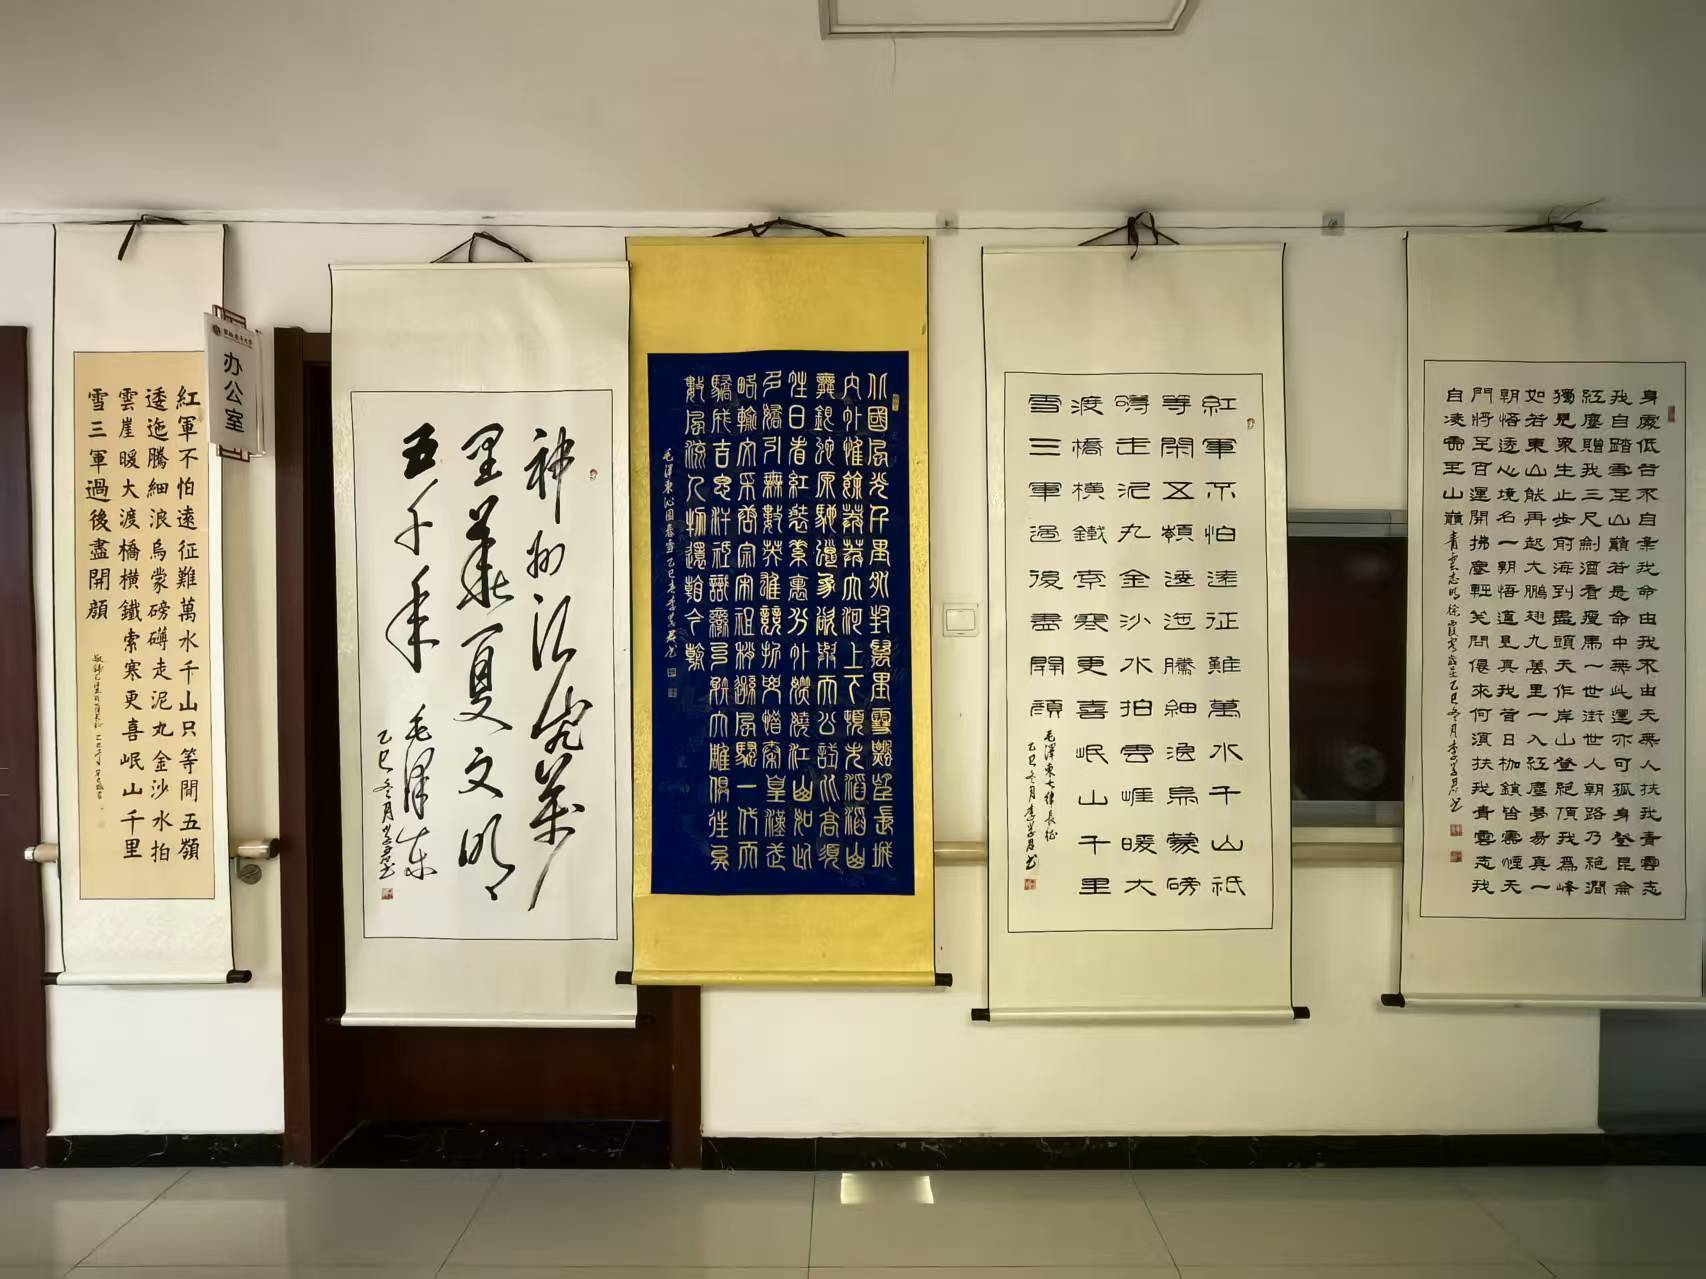 紅軍不怕遠征難萬水千山只等閒五嶺
逶迤騰細浪烏蒙磅礴走泥丸金沙水拍
雲崖暖大渡橋橫鐵索寒更喜岷山千里
雪三軍過後盡開顏
办公室
神州沃野萬
里華夏文明
五千年 毛澤東
乙巳冬月
北國風光千里冰封萬里雪飄望長城
內外惟餘莽莽大河上下頓失滔滔山
舞銀蛇原馳蠟象欲與天公試比高須
晴日看紅裝素裹分外嬈嬌江山如此
多嬌引無數英雄競折腰惜秦皇漢武
略輸文采唐宗宋祖稍遜風騷一代天
驕成吉思汗祇識彎弓射大雕俱往矣
數風流人物還看今朝
毛澤東沁園春雪乙巳冬李
紅軍不怕遠征難萬水千山祇
等閑五嶺逶迤騰細浪烏蒙磅
礴走泥丸金沙水拍雲崖暖大
渡橋橫鐵索寒更喜岷山千里
雪三軍過後盡開顏
毛澤東七律長征
乙巳冬月李
身處低谷不自棄我命由我不由天無人扶我青雲志
我自踏雪至山巔若是命中無此運亦可孤身登昆侖
紅塵贈我三尺劍酒看瘦馬一世街世人朝路乃絕澗
獨見眾生止步前海到盡頭天作岸山登絕頂我為峰
如若東山能再起大鵬翅九萬里一入紅塵夢易真一
朝悟透心境名一朝悟道見真我昔日枷鎖皆雲煙天
門將至百運開拂塵輕笑問僊來何湏扶我青雲志我
自凌雲至山巔 青雲志 乙巳冬月李